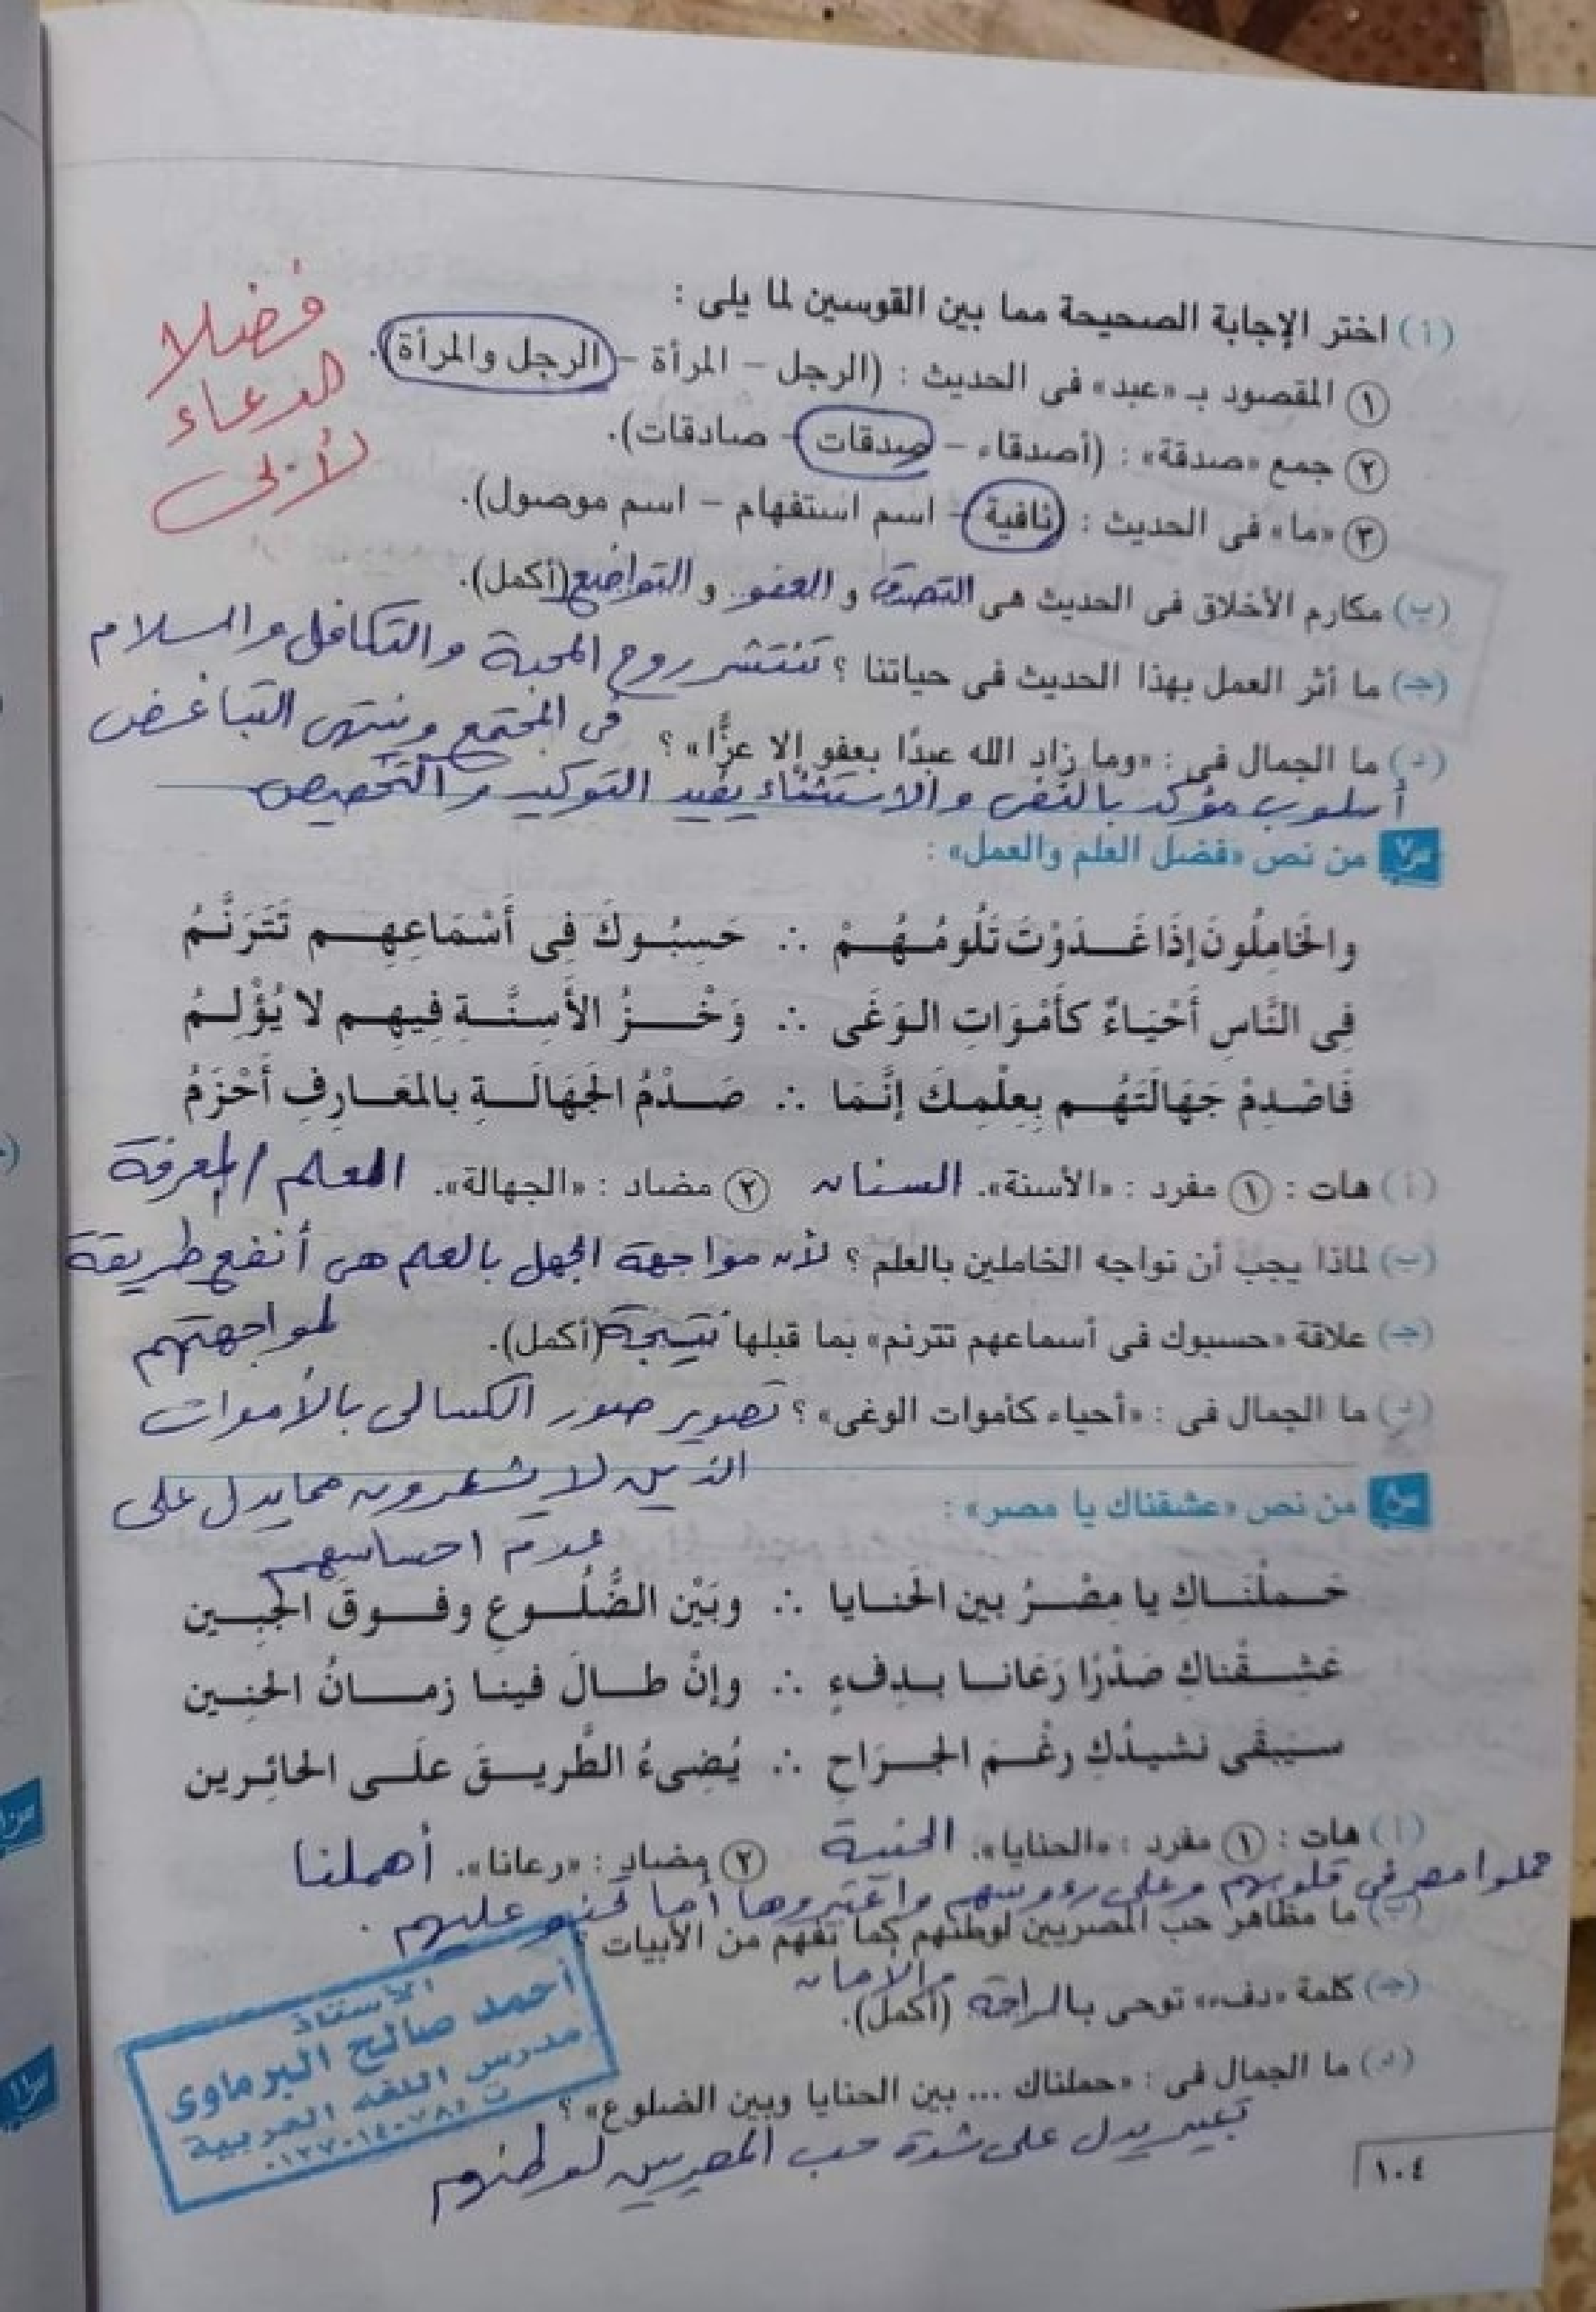 فضلا
الدعاء
لأبى
(أ) اختر الإجابة الصحيحة مما بين القوسين لما يلى :
١ المقصود بـ «عبد» فى الحديث : (الرجل – المرأة – الرجل والمرأة).
٢ جمع «صدقة» : (أصدقاء – صدقات – صادقات).
٣ «ما» فى الحديث : (نافية – اسم استفهام – اسم موصول).
(ب) مكارم الأخلاق فى الحديث هى التصدق و العفو و التواضع (أكمل).
(جـ) ما أثر العمل بهذا الحديث فى حياتنا ؟ تنتشر روح المحبة والتكافل والسلام
فى المجتمع وينتهى التباغض
(د) ما الجمال فى : «وما زاد الله عبدًا بعفو إلا عزًّا» ؟
أسلوب مؤكد بالنفى والاستثناء يفيد التوكيد والتخصيص
س٧ من نص «فضل العلم والعمل» :
والخَامِلُونَ إذَا غَـدَوْتَ تَلُومُـهُـمْ ∴ حَسِبُـوكَ فِى أَسْمَاعِهِـم تَتَرَنَّـمُ
فِى النَّاسِ أَحْيَـاءٌ كأَمْـوَاتِ الـوَغَى ∴ وَخْـزُ الأَسِنَّـةِ فِيهِـم لا يُؤْلِـمُ
فَاصْـدِمْ جَهَالَتَهُـم بِعِلْمِـكَ إنَّمَا ∴ صَـدْمُ الجَهَالَـةِ بالمَعَـارِفِ أَحْزَمُ
(أ) هات : ١ مفرد : «الأسنة». السنان ٢ مضاد : «الجهالة». العلم / المعرفة
(ب) لماذا يجب أن نواجه الخاملين بالعلم ؟ لأن مواجهة الجهل بالعلم هى أنفع طريقة
لمواجهتهم
(جـ) علاقة «حسبوك فى أسماعهم تترنم» بما قبلها نتيجة (أكمل).
(د) ما الجمال فى : «أحياء كأموات الوغى» ؟ تصوير صور الكسالى بالأموات
الذين لا يشعرون مما يدل على
عدم احساسهم
س٨ من نص «عشقناك يا مصر» :
حَـملْنَـاكِ يا مِصْـرُ بين الحَنـايا ∴ وبَيْن الضُّلُـوعِ وفـوقَ الجَبِـين
عَشِـقْناكِ صَدْرًا رَعَانـا بـدِفءٍ ∴ وإنْ طـالَ فينـا زمـانُ الحَنِـين
سـيَبْقَى نشيـدُكِ رغْـمَ الجـرَاحِ ∴ يُضِىءُ الطَّريـقَ علَـى الحائِـرين
(أ) هات : ١ مفرد : «الحنايا». الحنية ٢ مضاد : «رعانا». أهملنا
حملوا مصر فى قلوبهم وعلى رءوسهم واعتبروها أما تحنو عليهم.
(ب) ما مظاهر حب المصريين لوطنهم كما تفهم من الأبيات ؟
(جـ) كلمة «دفء» توحى بـالراحة والأمان (أكمل).
(د) ما الجمال فى : «حملناك ... بين الحنايا وبين الضلوع» ؟
تعبير يدل على شدة حب المصريين لوطنهم
الأستاذ
أحمد صالح البرماوى
مدرس اللغة العربية
١٠٤